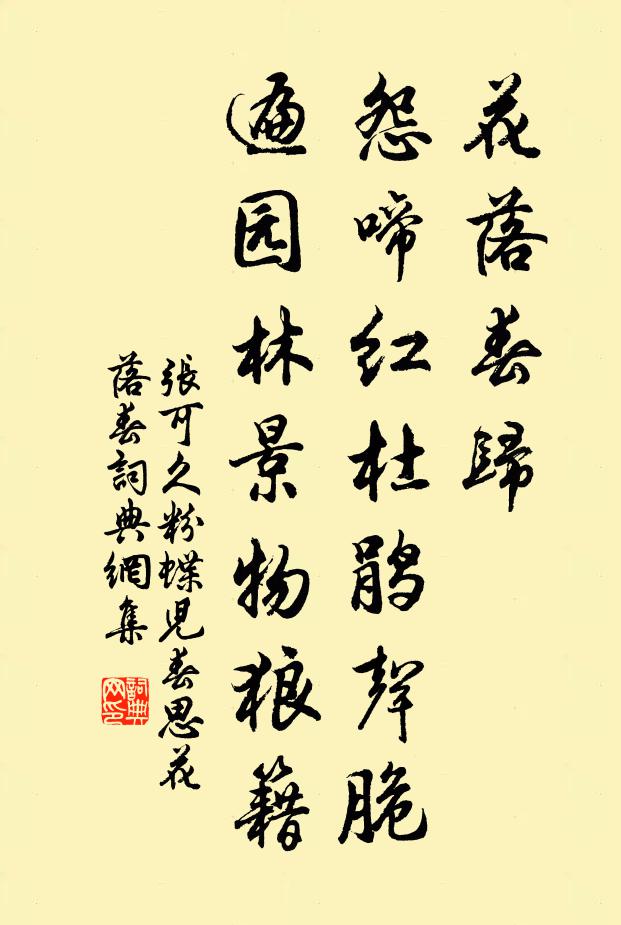 花落春歸
怨啼红杜鹃聲脆
遍园林景物狼籍
張可久粉蝶児春思花
落春詞典網集
詞典网印